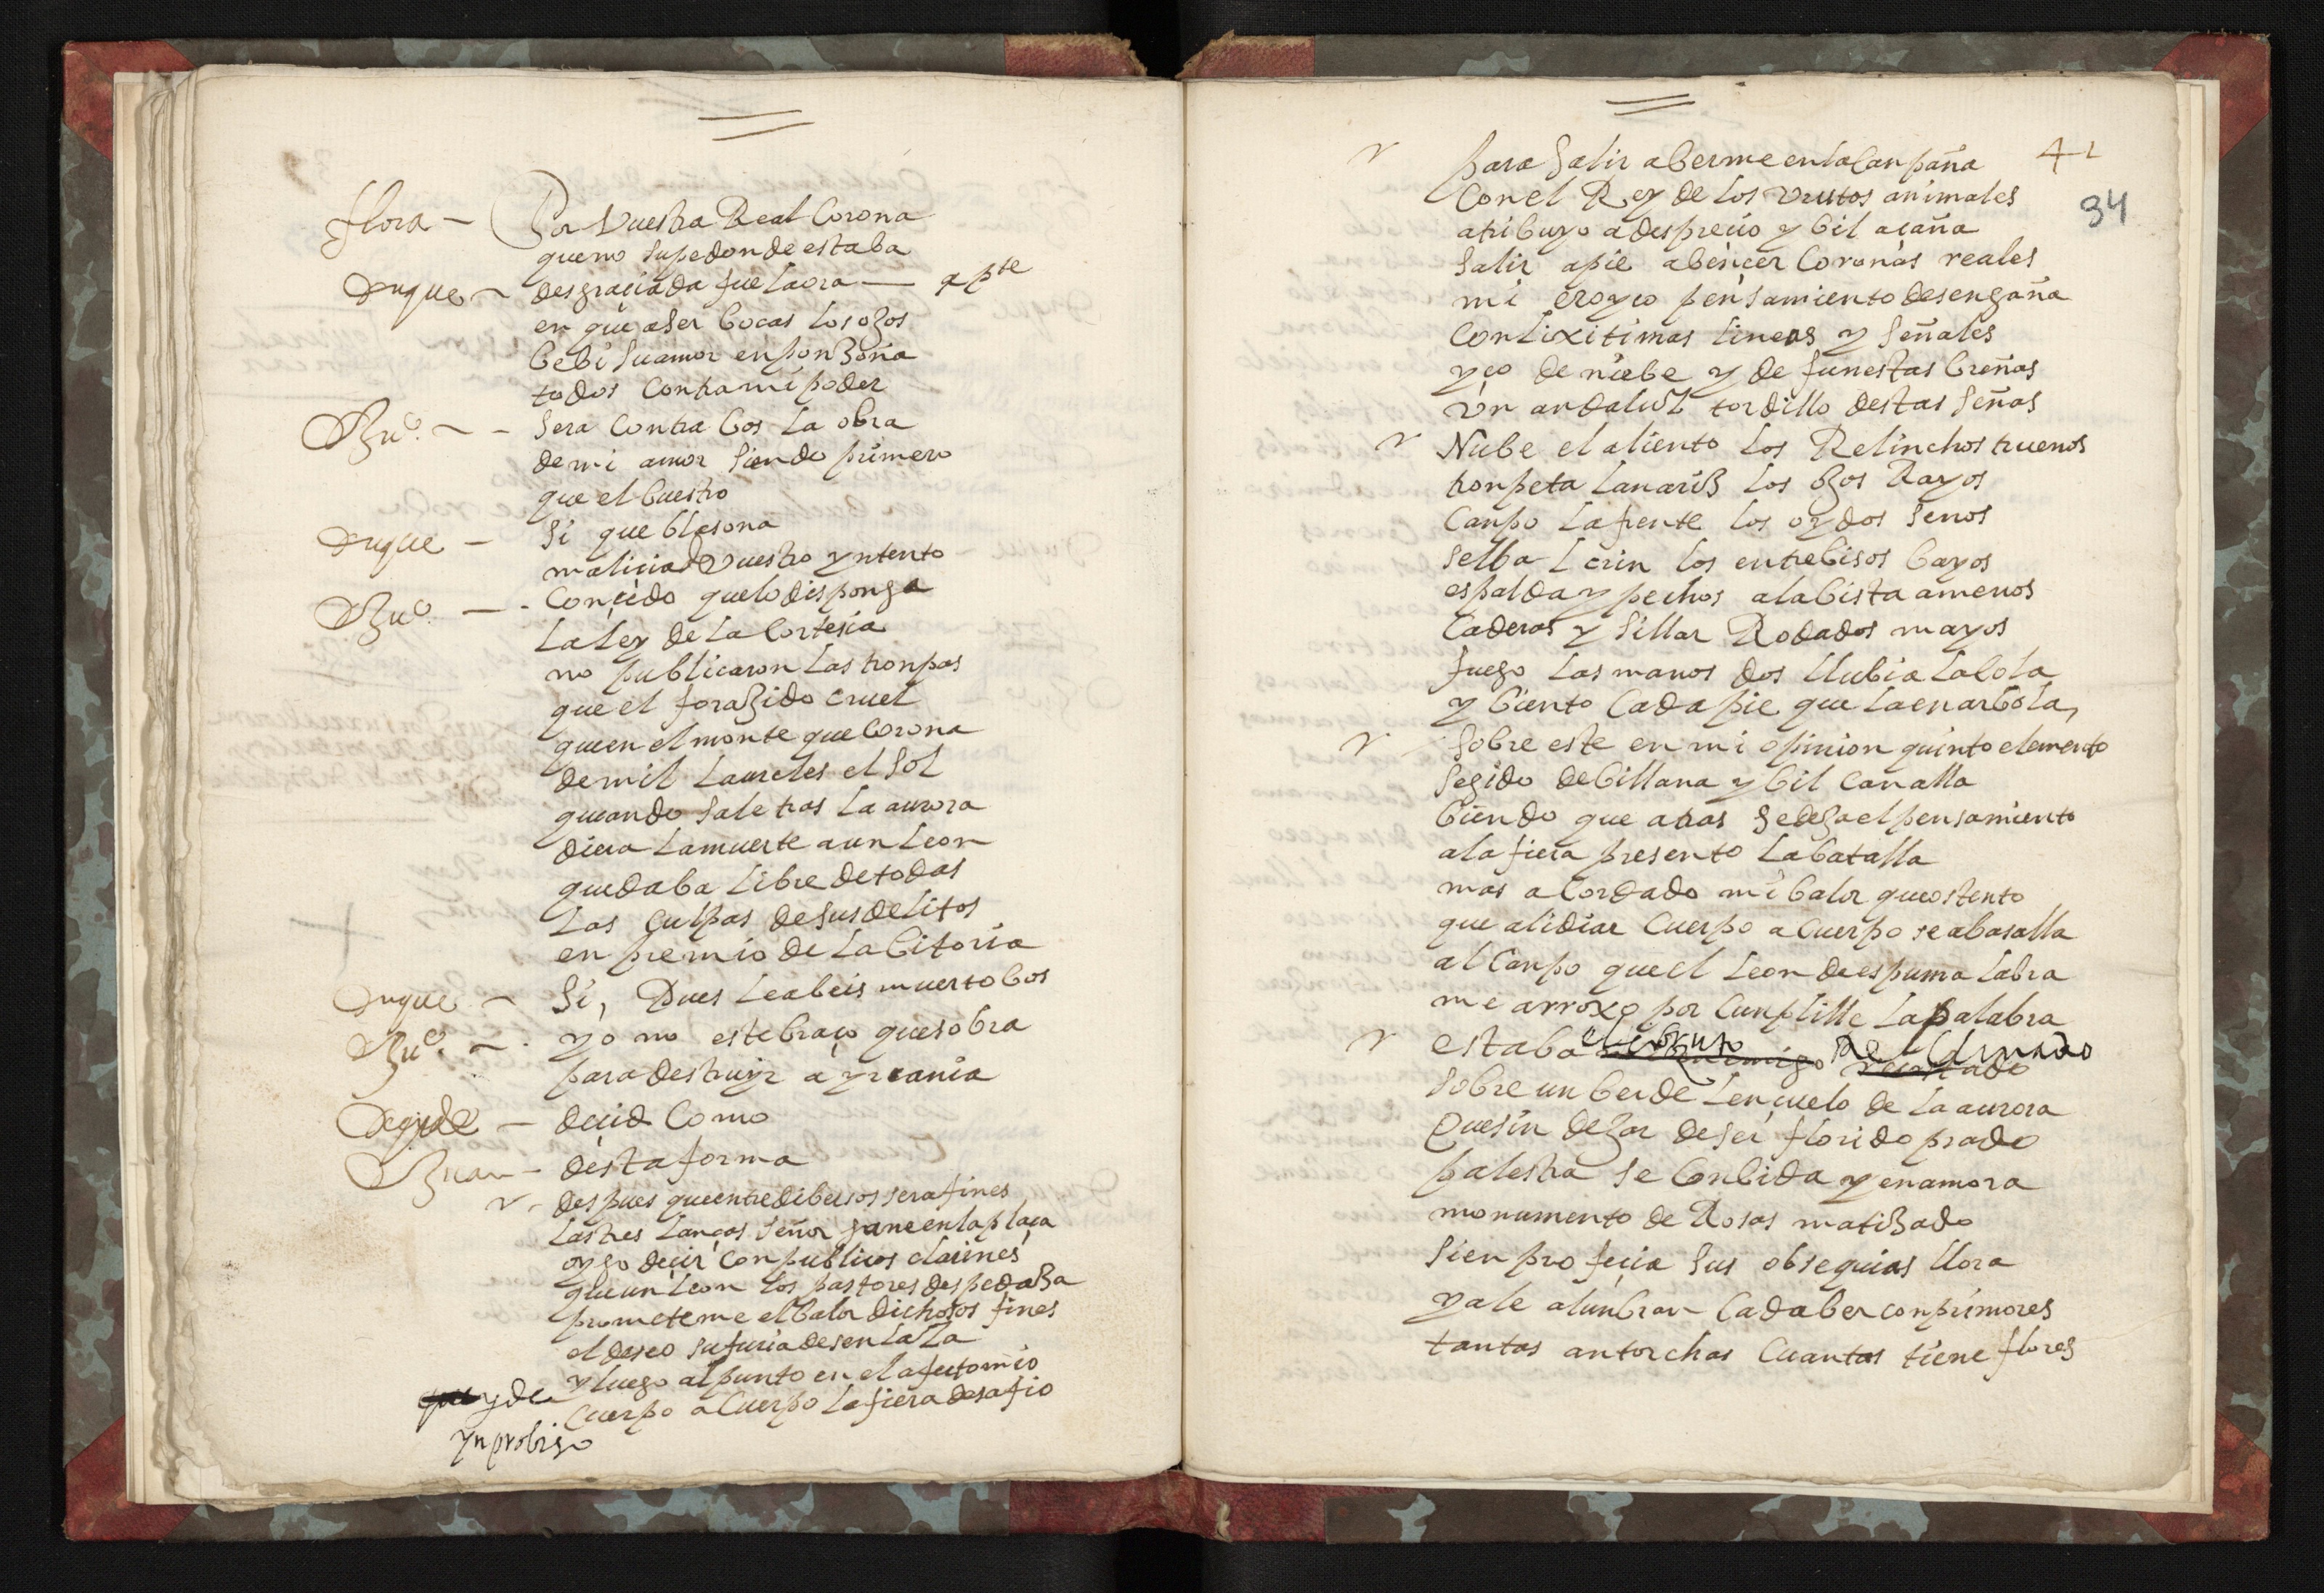 flora — Por Vuestra Real Corona
que no supe donde estaba
Duque — desgraciada fue la ora — apte
en que a ser bocas los ojos
bebi su amor en ponzoña
todos contra mi poder
Juº. — sera contra bos la obra
de mi amor siendo primero
que el buestro
Duque — si que blasona
malicia Vuestro yntento
Juº. — concedo que lo disponga
la ley de la cortesia
no publicaron las tronpas
que el forajido cruel
que en el monte que corona
de mil laureles el sol
quando sale tras la aurora
diera la muerte a un leon
quedaba libre de todas
las culpas de sus delitos
en premio de la bitoria
Duque — si, Pues le abeis muerto bos
Juº. — yo no este braço que sobra
para destruyr a yrcania
Duque — decid como
Juan — desta forma
r - despues que entre dibersos serafines
las tres lanças señor gane en la plaça
oygo decir con publicos clarines
que un leon los pastores despedaza
prometeme el balor dichosos fines
el deseo su furia desenlaza
y luego al punto en el afecto mio
cuerpo a cuerpo la fiera desafio
yde
ynprobiso
41
34
r para salir a berme en la canpaña
con el Rey de los Vrutos animales
atribuyo a desprecio y bil açaña
salir a pie a bencer coronas reales
mi eroyco pensamiento desengaña
con lixitimas lineas y señales
yço de niebe y de funestas breñas
Vn andaluz tordillo destas señas
r Nube el aliento los Relinchos truenos
tronpeta la nariz los ojos Rayos
canpo la frente los oydos senos
selba l crin los entrebisos bayos
espalda y pechos a la bista amenos
caderas y sillar Rodados mayos
fuego las manos dos llubia la cola
y biento cada pie que la enarbola,
r sobre este en mi opinion quinto elemento
segido de billana y bil canalla
biendo que atras se deja el pensamiento
a la fiera presento la batalla
mas acordado mi balor que ostento
que a lidiar cuerpo a cuerpo se abasalla
al canpo que el leon de espuma labra
me arroxo por cunplille la palabra
r estaba el bruto Reclinado
sobre un berde lençuelo de la aurora
Que sin dejar de ser florido prado
palestra se conbida y enamora
monumento de Rosas matizado
sien profecia sus obsequias llora
yale alunbran cadaber con primores
tantas antorchas cuantas tiene flores